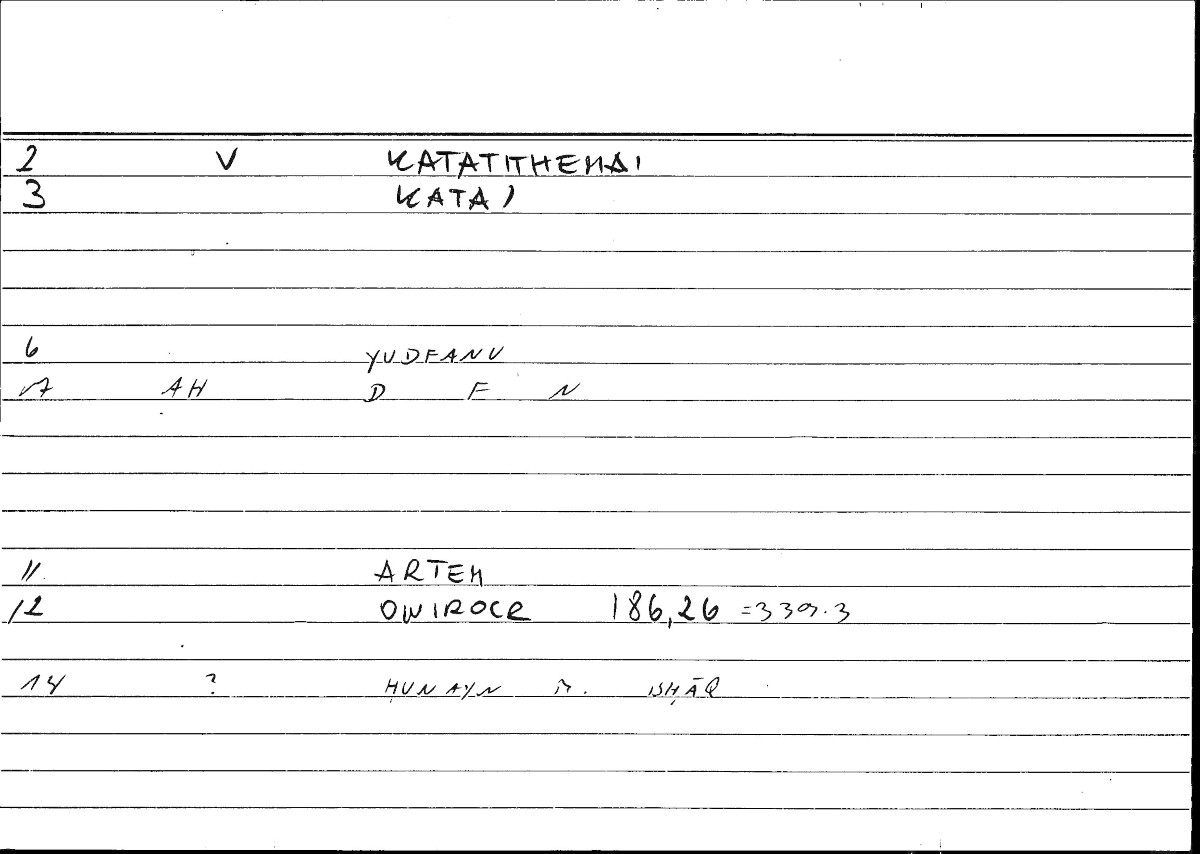 2 V KATATITHEMAI
3 KATA)
6 YUDFANU
7 AH D F N
11 ARTEM
12 ONIROCR 186,26 =339.3
14 ? ḤUNAYN B. ISḤĀQ